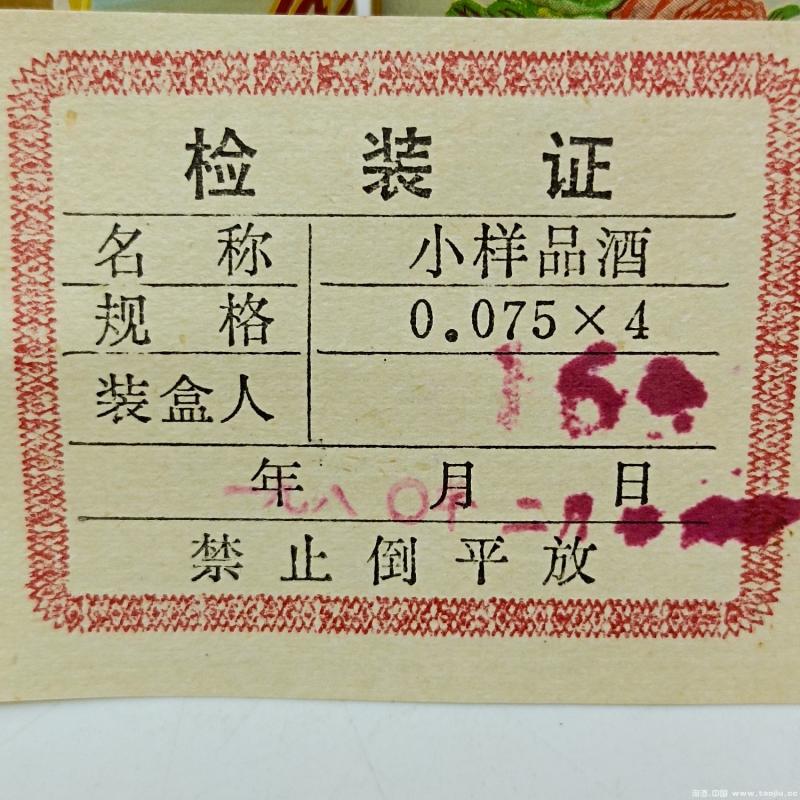 检装证
名称 小样品酒
规格 0.075×4
装盒人 16
年 月 日
一九八〇年二月
禁止倒平放
淘酒.中国 www.taojiu.cc